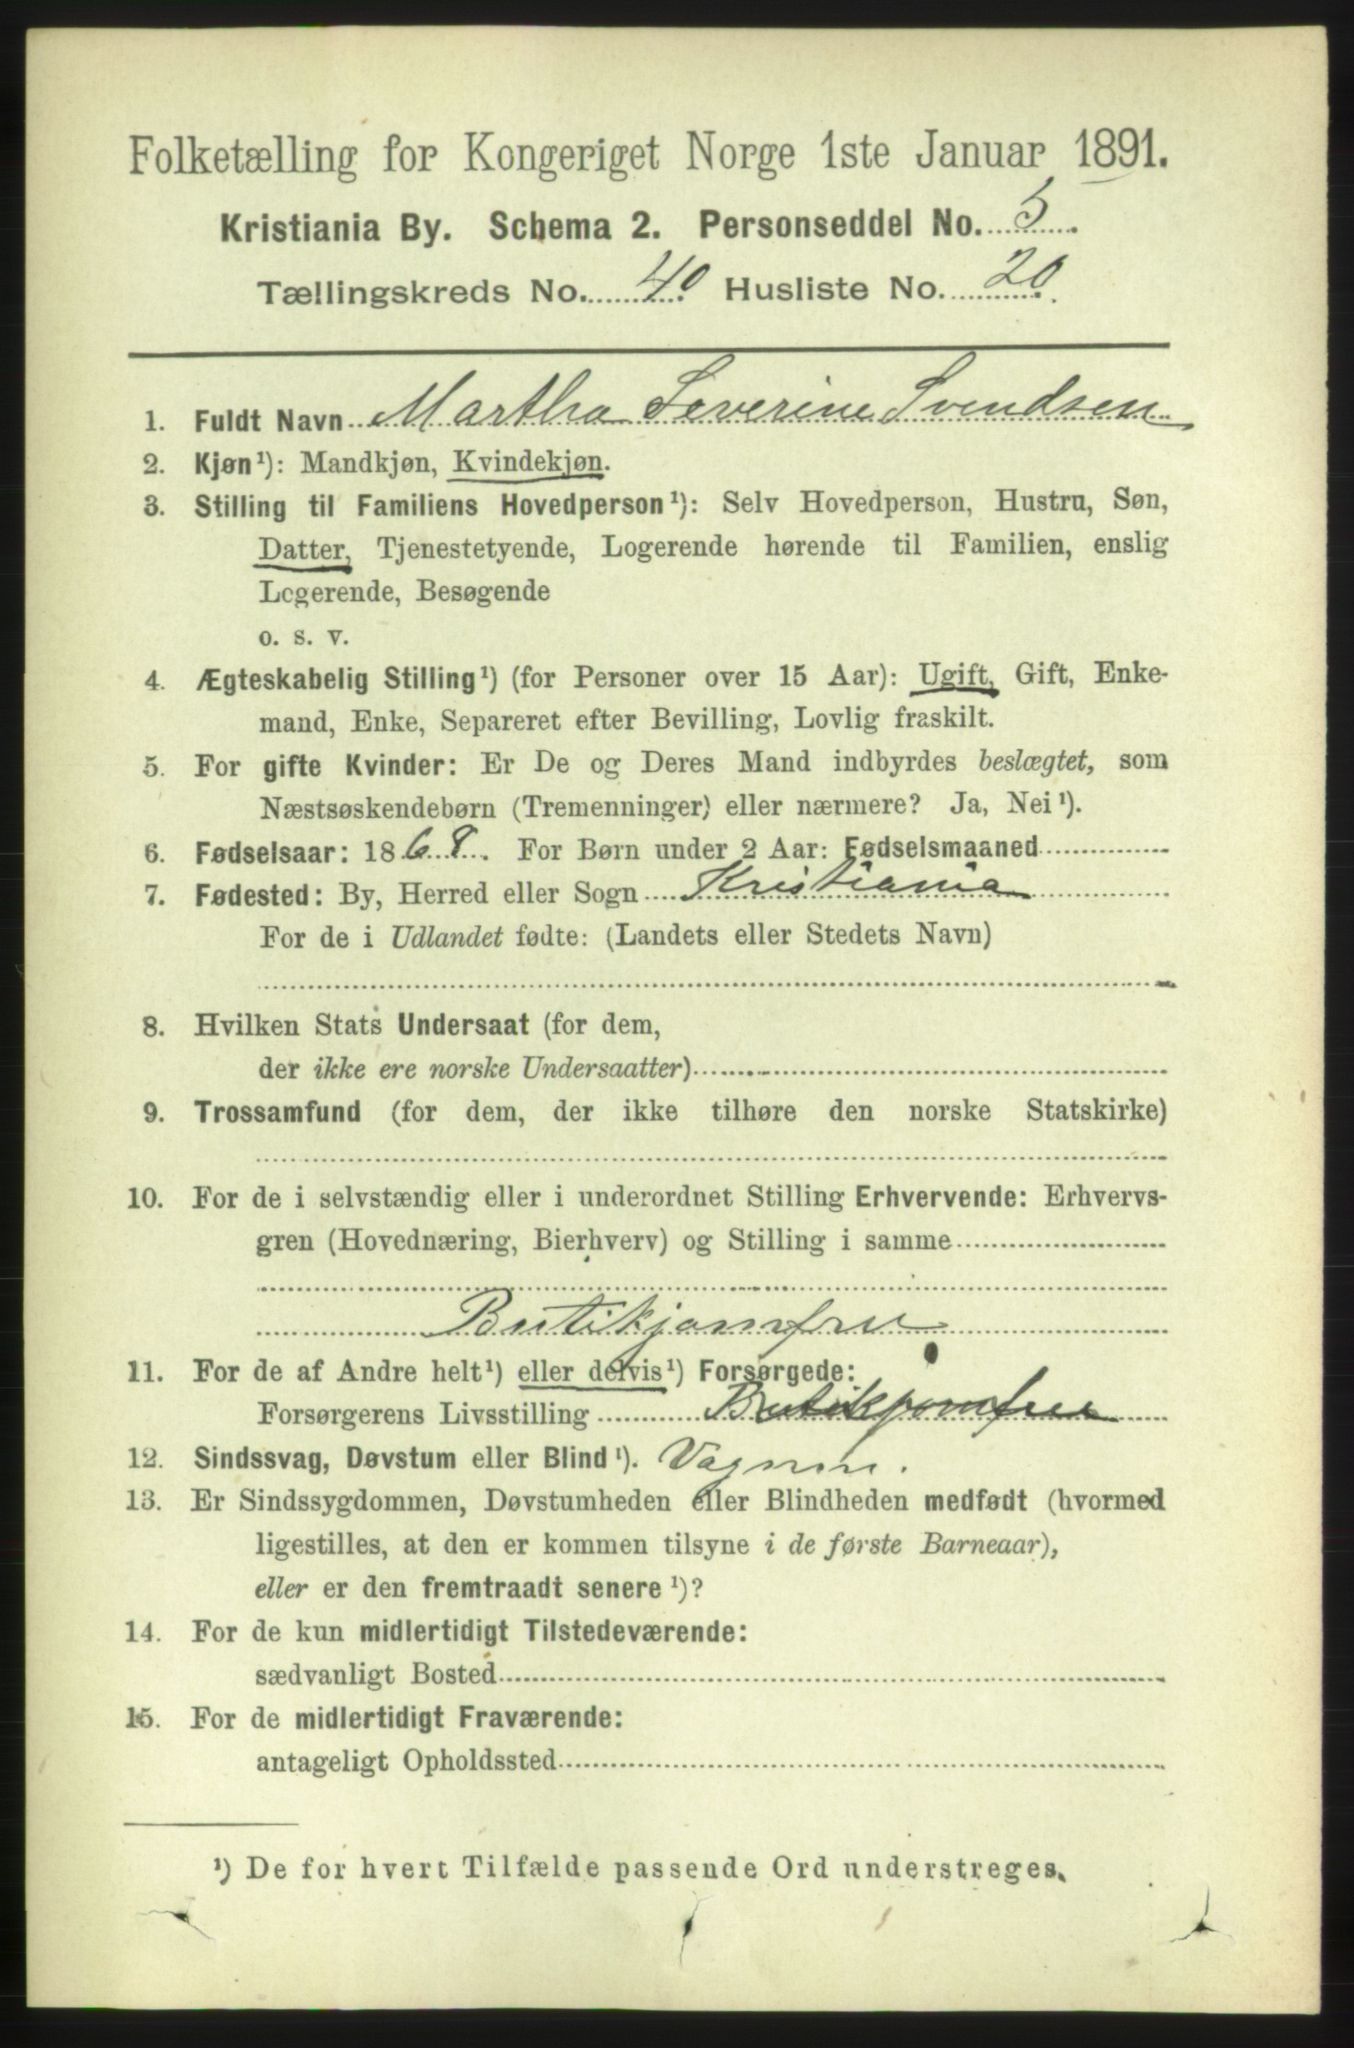 Folketælling for Kongeriget Norge 1ste Januar 1891.
Kristiania By. Schema 2. Personseddel No. 5
Tællingskreds No. 40 Husliste No. 20
1. Fuldt Navn Martha Severine Svendsen
2. Kjøn¹): Mandkjøn, Kvindekjøn.
3. Stilling til Familiens Hovedperson¹): Selv Hovedperson, Hustru, Søn,
Datter, Tjenestetyende, Logerende hørende til Familien, enslig
Logerende, Besøgende
o. s. v.
4. Ægteskabelig Stilling¹) (for Personer over 15 Aar): Ugift, Gift, Enke-
mand, Enke, Separeret efter Bevilling, Lovlig fraskilt.
5. For gifte Kvinder: Er De og Deres Mand indbyrdes beslægtet, som
Næstsøskendebørn (Tremenninger) eller nærmere? Ja, Nei¹).
6. Fødselsaar: 1868. For Børn under 2 Aar: Fødselsmaaned
7. Fødested: By, Herred eller Sogn Kristiania
For de i Udlandet fødte: (Landets eller Stedets Navn)
8. Hvilken Stats Undersaat (for dem,
der ikke ere norske Undersaatter)
9. Trossamfund (for dem, der ikke tilhøre den norske Statskirke)
10. For de i selvstændig eller i underordnet Stilling Erhvervende: Erhvervs-
gren (Hovednæring, Bierhverv) og Stilling i samme
Butikjomfru
11. For de af Andre helt¹) eller delvis¹) Forsørgede:
Forsørgerens Livsstilling Butikjomfru
12. Sindssvag, Døvstum eller Blind¹).
13. Er Sindssygdommen, Døvstumheden eller Blindheden medfødt (hvormed
ligestilles, at den er kommen tilsyne i de første Barneaar),
eller er den fremtraadt senere¹)?
14. For de kun midlertidigt Tilstedeværende:
sædvanligt Bosted
15. For de midlertidigt Fraværende:
antageligt Opholdssted
¹) De for hvert Tilfælde passende Ord understreges.